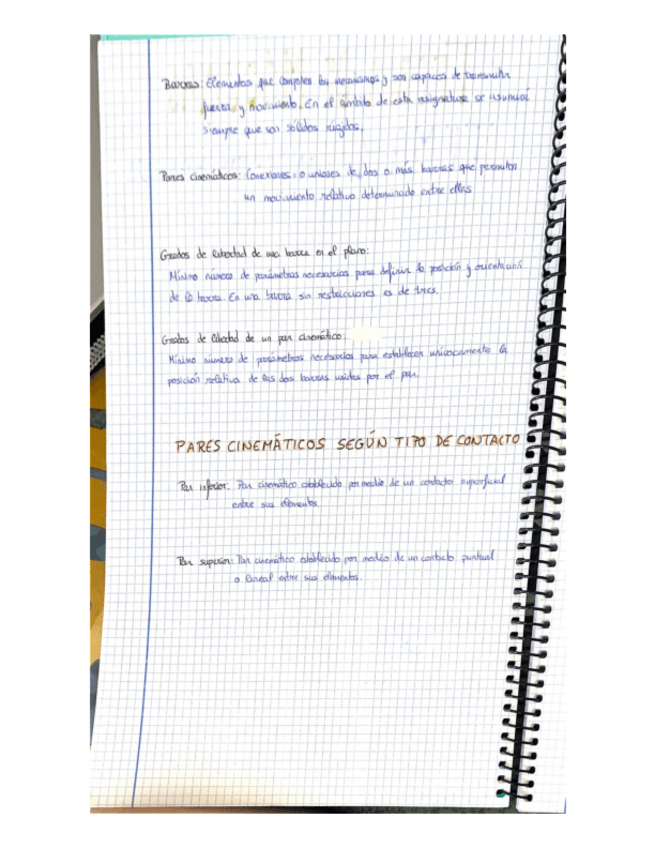 Barras: Elementos que componen los mecanismos y son capaces de transmitir
fuerza y movimiento. En el ámbito de esta asignatura se asumirá
siempre que son sólidos rígidos.
Pares cinemáticos: Conexiones o uniones de dos o más barras que permiten
un movimiento relativo determinado entre ellas
Grados de libertad de una barra en el plano:
Mínimo número de parámetros necesarios para definir la posición y orientación
de la barra. En una barra sin restricciones es de tres.
Grados de libertad de un par cinemático:
Mínimo número de parámetros necesarios para establecer unívocamente la
posición relativa de las dos barras unidas por el par.
PARES CINEMÁTICOS SEGÚN TIPO DE CONTACTO
Par inferior: Par cinemático establecido por medio de un contacto superficial
entre sus elementos.
Par superior: Par cinemático establecido por medio de un contacto puntual
o lineal entre sus elementos.